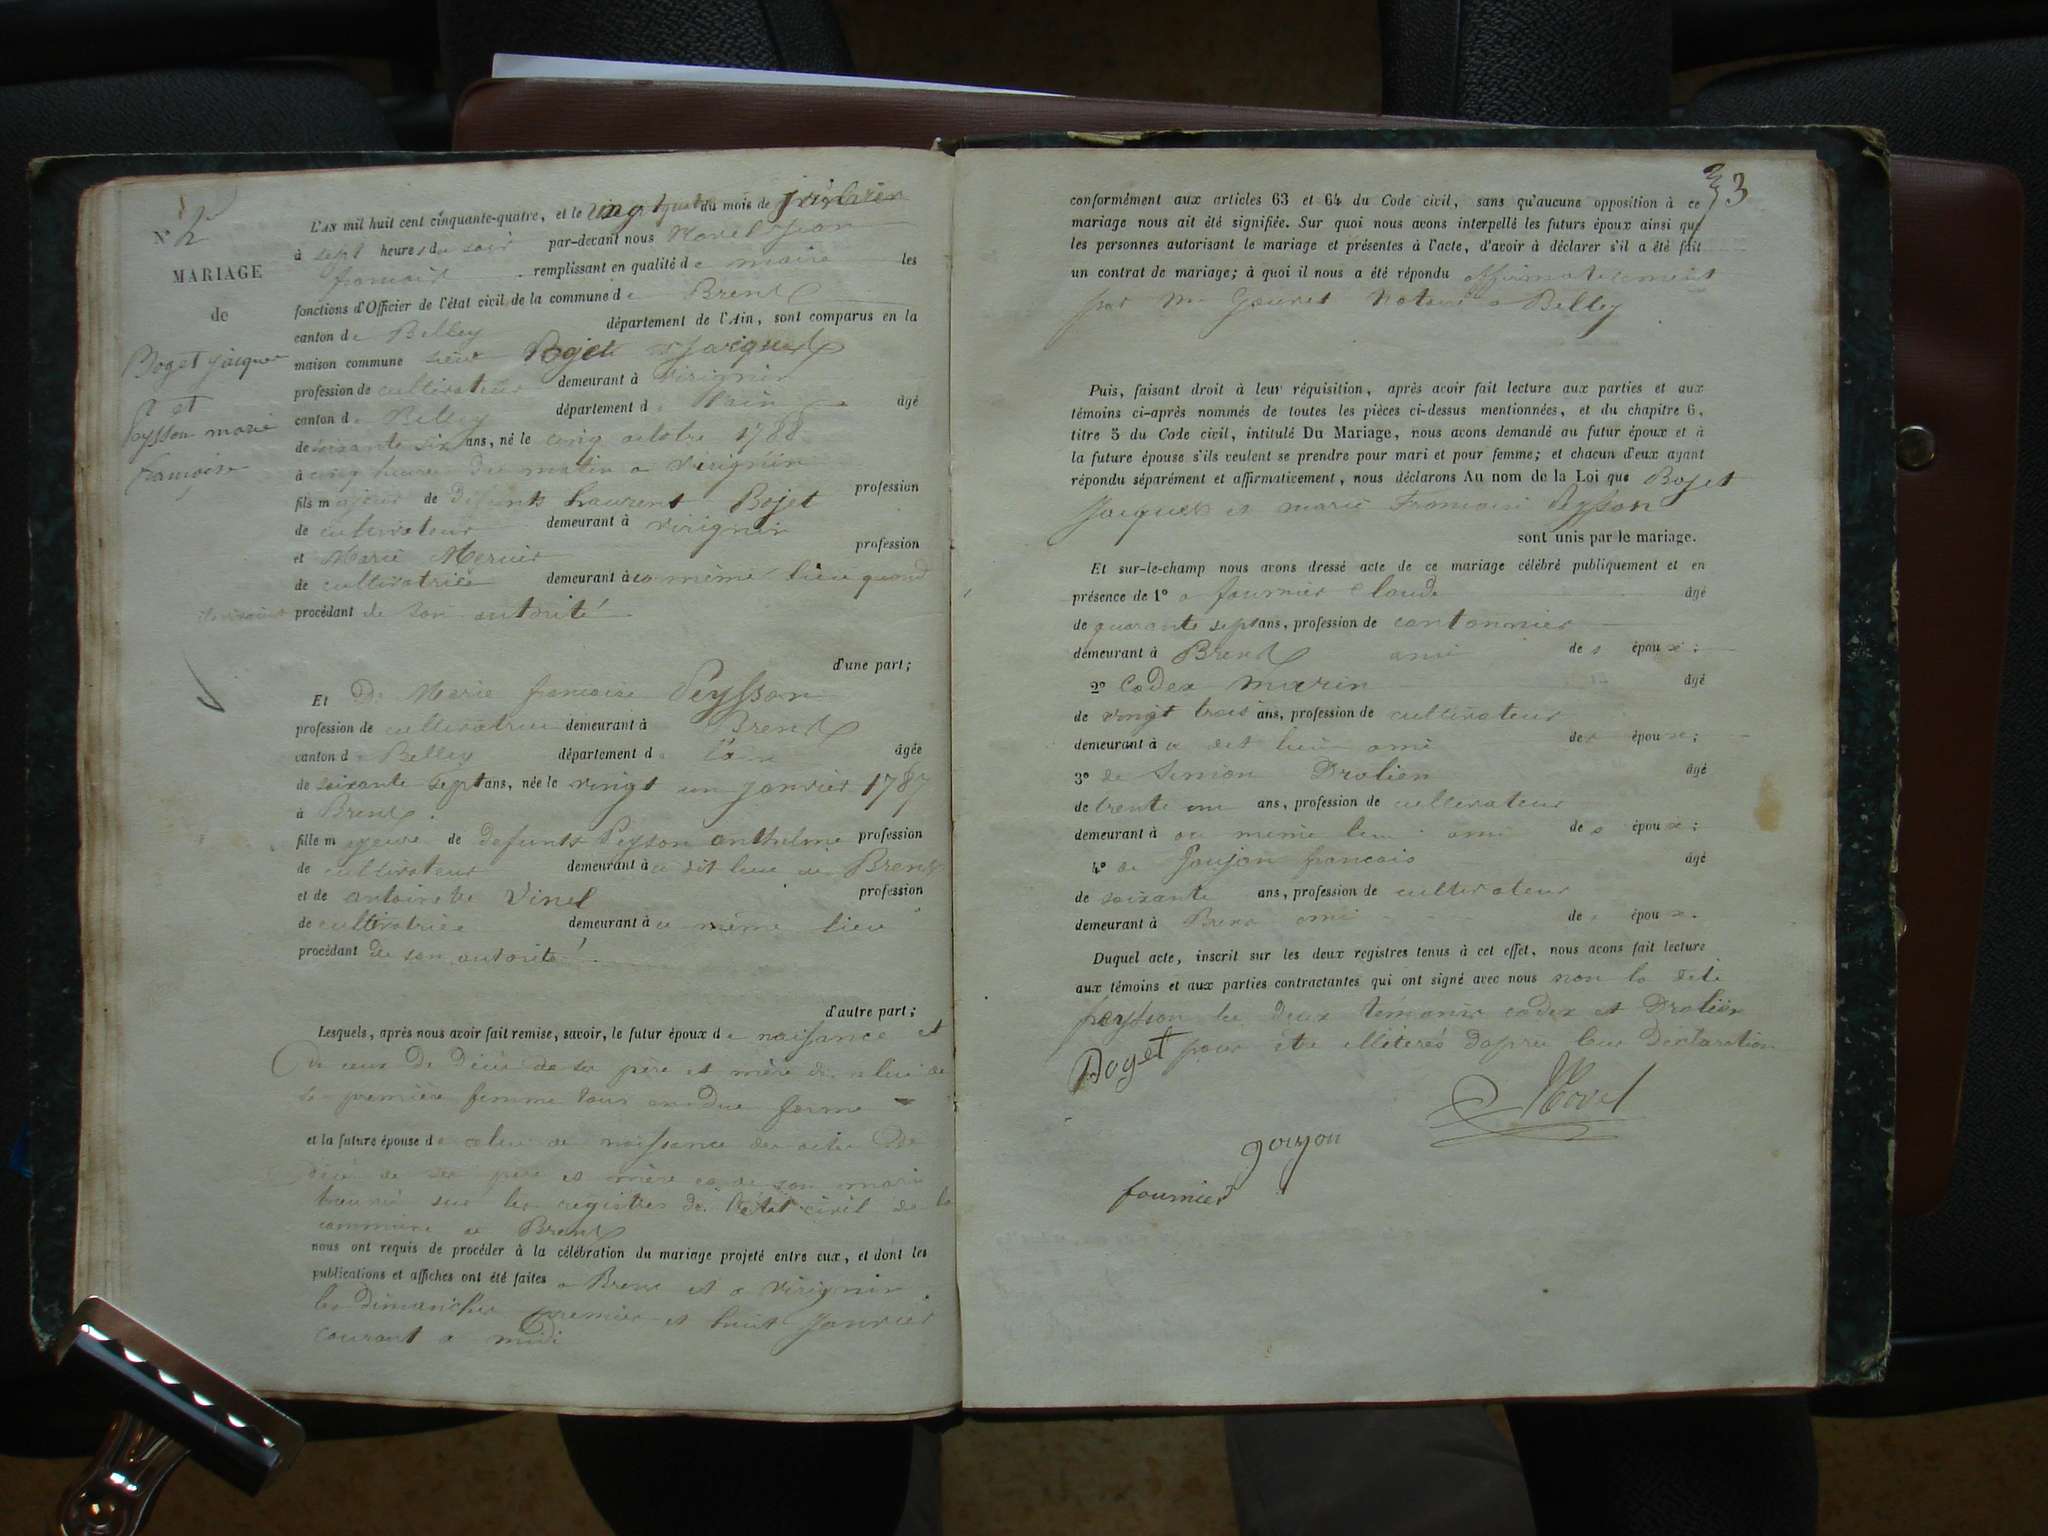 N° 2
MARIAGE
de
Boget jacque
et
Peysson marie
francoise
L'AN mil huil cent cinquante-quatre, et le vingt quatre du mois de
à sept heures du soir par-devant nous Novel Jean
francois remplissant en qualité de maire les
fonctions d'Officier de l'état civil de la commune de Brens
canton de Belley département de l'Ain, sont comparus en la
maison commune sieur Bojet Jacques
profession de cultivateur demeurant à Virignin
canton de Belley département de l'ain âgé
de soixante six ans, né le cinq octobre 1788
à cinq heures du matin a Virignin
fils majeur de défunts Laurent Bojet profession
de cultivateur demeurant à Virignin
et Marie Mercier profession
de cultivatrice demeurant à au même lieu quand
procédant de son autorité
d'une part;
Et De Marie francoise Peysson
profession de cultivatrice demeurant à Brens
canton de Belley département de l'ain âgée
de soixante sept ans, née le vingt un janvier 1787
à Brens
fille majeure de defunts Peyson anthelme profession
de cultivateur demeurant à au dit lieu de Brens
et de antoinette Vinel profession
de cultivatrice demeurant à au même lieu
procédant de son autorité
d'autre part;
Lesquels, après nous avoir fait remise, savoir, le futur époux de naissance et
de ceux de Décès de ses père et mère de celui de
sa première femme tous en due forme
et la future épouse de celui de naissance des actes de
décès de ses père et mère et de son mari
trouvé sur les registres de l'état civil de la
commune de Brens
nous ont requis de procéder à la célébration du mariage projeté entre eux, et dont les
publications et affiches ont été faites a Brens et a Virignin
les dimanches premier et huit Janvier
courant a midi
33
conformément aux articles 63 et 64 du Code civil, sans qu'aucune opposition à ce
mariage nous ait été signifiée. Sur quoi nous avons interpellé les futurs époux ainsi que
les personnes autorisant le mariage et présentes à l'acte, d'avoir à déclarer s'il a été fait
un contrat de mariage; à quoi il nous a été répondu affirmativement
par Mr Notaire a Belley
Puis, faisant droit à leur réquisition, après avoir fait lecture aux parties et aux
témoins ci-après nommés de toutes les pièces ci-dessus mentionnées, et du chapitre 6,
titre 5 du Code civil, intitulé Du Mariage, nous avons demandé au futur époux et à
la future épouse s'ils veulent se prendre pour mari et pour femme; et chacun d'eux ayant
répondu séparément et affirmativement, nous déclarons Au nom de la Loi que Bojet
Jacques et marie Francoise Peysson
sont unis par le mariage.
Et sur-le-champ nous avons dressé acte de ce mariage célébré publiquement et en
présence de 1° a fournier Claude âgé
de quarante sept ans, profession de cantonnier
demeurant à Brens ami des époux;
2° Codex marin âgé
de vingt trois ans, profession de cultivateur
demeurant à au dit lieu ami des époux;
3° de Simion Drolien âgé
de trente un ans, profession de cultivateur
demeurant à au même lieu ami des époux;
4° de Goujon francois âgé
de soixante ans, profession de cultivateur
demeurant à Brens ami des époux.
Duquel acte, inscrit sur les deux registres tenus à cet effet, nous avons fait lecture
aux témoins et aux parties contractantes qui ont signé avec nous non la dite
peysson les deux témoins codex et Drolien
pour être illiterés dapres leur Déclaration
Boget
Novel
goujon
fournier